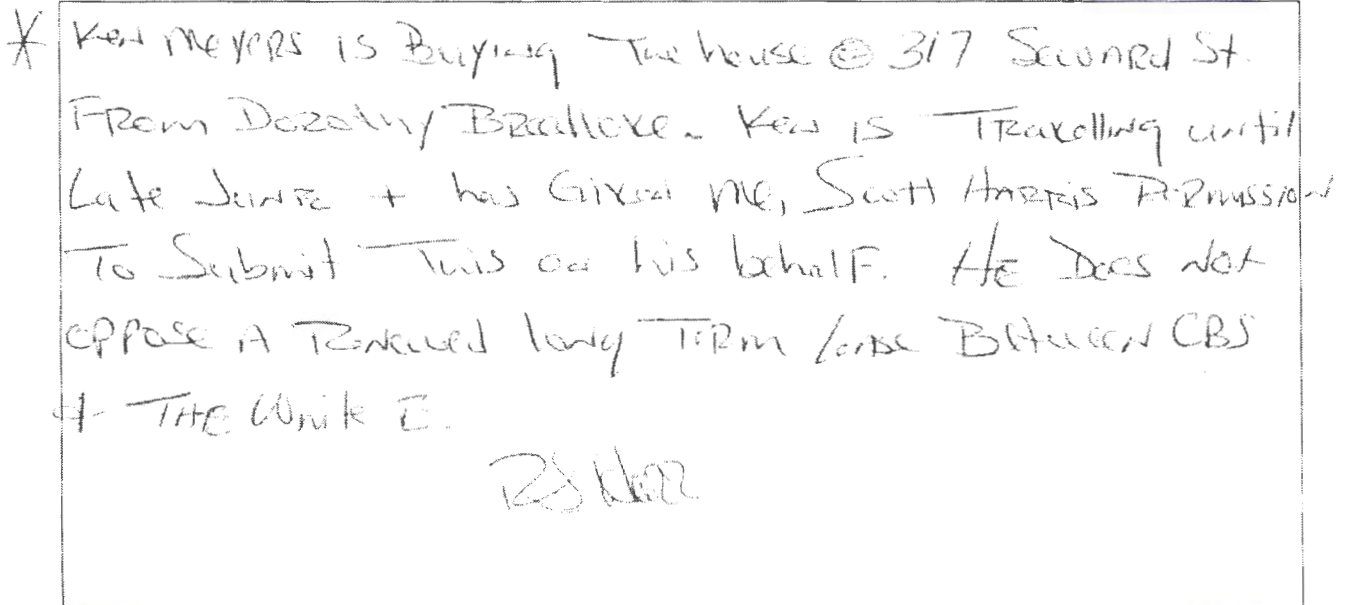 * Ken Meyers is Buying The house @ 317 Seward St.
From Dorothy Breedlove. Ken is Travelling until
Late June + has Given me, Scott Harris Permission
To Submit This on his behalf. He Does Not
oppose A Renewed long Term lease Between CBS
+ THE White E.